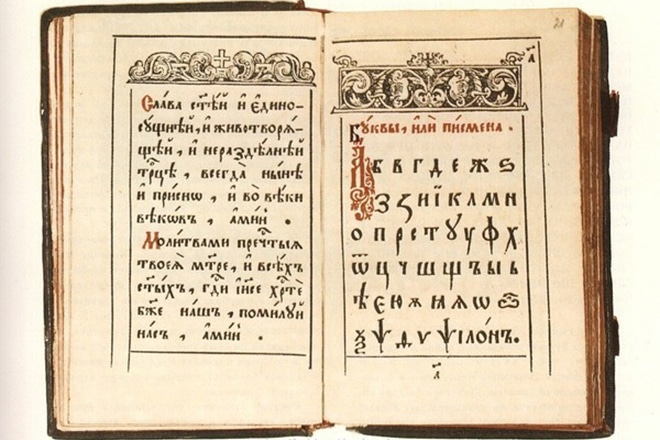 Сла́ва ст҃ѣ́й и҆ є҆дино-
сꙋ́щнѣй, и҆ животворѧ́-
щѣй, и҆ нераздѣ́лнѣй
трⷪ҇цѣ, всегда̀ ны́нѣ
и҆ при́снѡ, и҆ во вѣ́ки
вѣкѡ́въ, а҆ми́нь.
Моли́твами пречⷭ҇тыѧ
твоеѧ̀ мт҃ре, и҆ всѣ́хъ
ст҃ы́хъ, гдⷭ҇и і҆и҃се хрⷭ҇тѐ
бж҃е на́шъ, поми́лꙋй
на́съ, а҆ми́нь.
21
а҃
Бꙋ́квы, и҆лѝ пи́смена.
А Б В Г Д Е Ж Ѕ
З Ꙁ И Ї К Л М Н
О П Р С Т Ꙋ У Ф Х
Ѿ Ц Ч Ш Щ Ъ Ы Ь
Ѣ Є Ю Ѫ Ꙗ Ѡ
Ѯ Ѱ Ѵ Ѱі́лѡ́нъ.